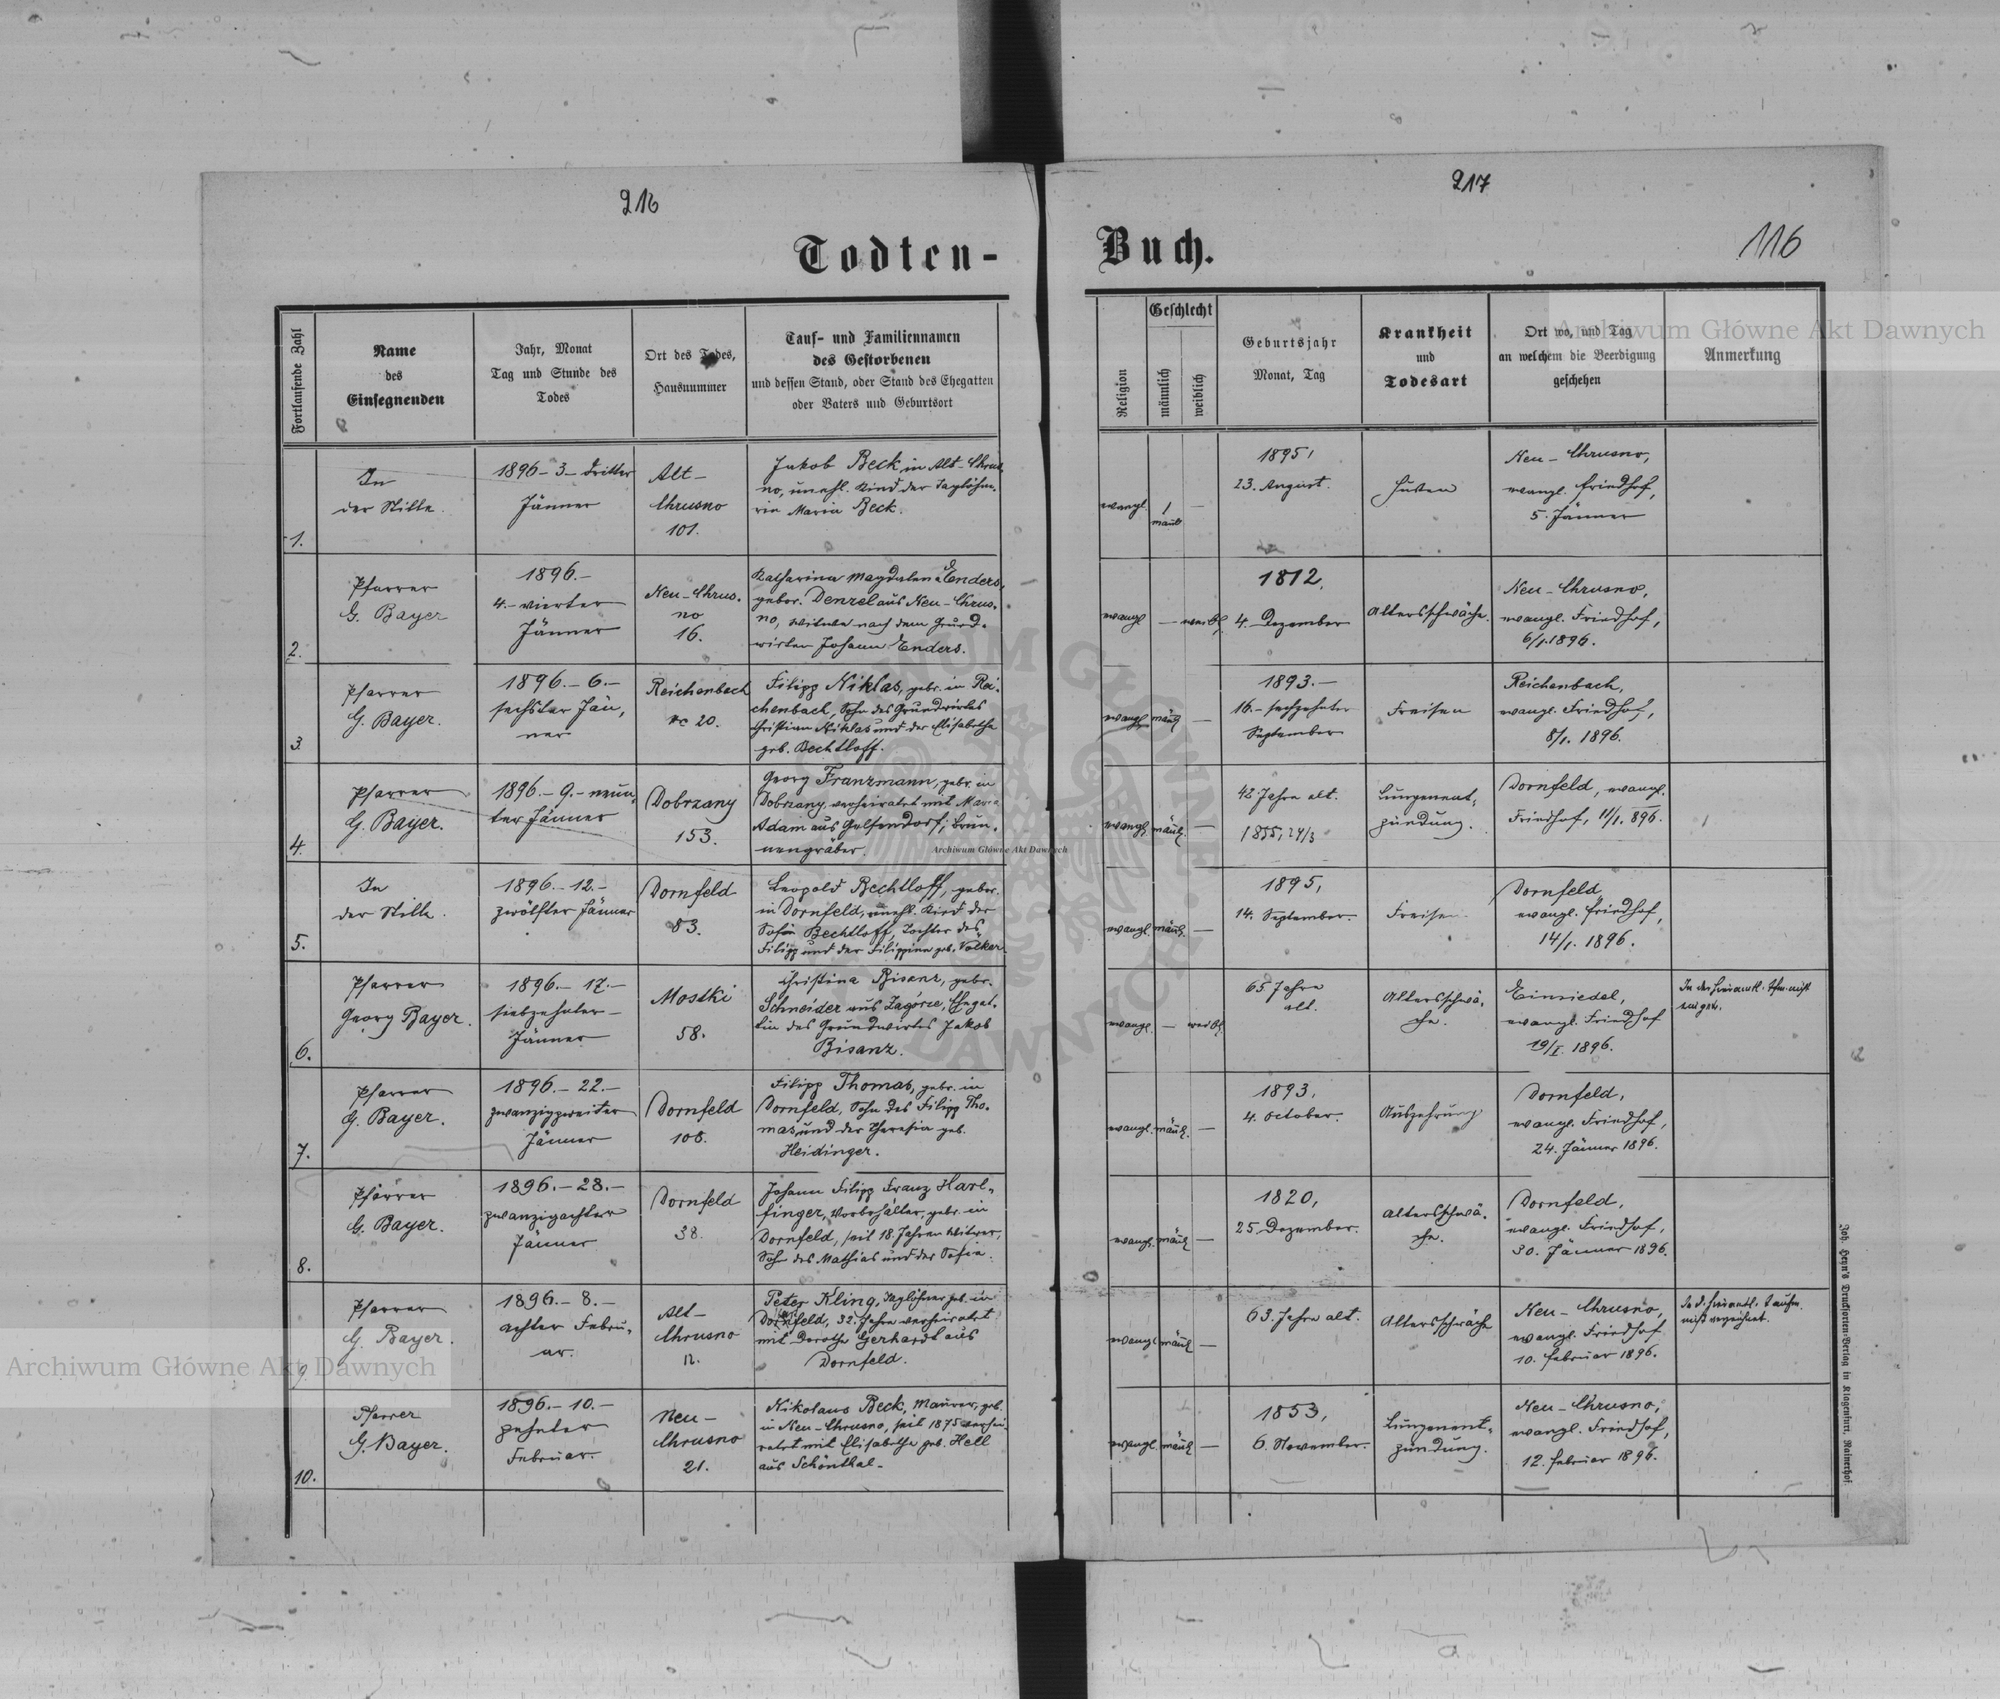 216
217
116
Todten-
Buch.
Fortlaufende Zahl
Name
des
Einsegnenden
Jahr, Monat
Tag und Stunde des
Todes
Ort des Todes,
Hausnummer
Tauf- und Familiennamen
des Gestorbenen
und dessen Stand, oder Stand des Ehegatten
oder Vaters und Geburtsort
Religion
Geschlecht
männlich
weiblich
Geburtsjahr
Monat, Tag
Krankheit
und
Todesart
Ort wo, und Tag
an welchem die Beerdigung
geschehen
Anmerkung
1.
In
der Stille.
1896 - 3 - dritter
Jänner
Alt-
Chrusno
101.
Jakob Beck, in Alt-Chrus-
no, unehl. Kind der Taglöhne-
rin Maria Beck.
evangl.
1
männl
—
1895,
23. August.
Husten
Neu-Chrusno,
evangl. Friedhof,
5. Jänner
2.
Pfarrer
G. Bayer
1896.-
4.- vierter
Jänner
Neu-Chrus-
no
16.
Katharina Magdalena Enders,
gebor. Denzel aus Neu-Chrus-
no, Witwe nach dem Grund-
wirten Johann Enders.
evangl
— weibl.
1812,
4. Dezember
Altersschwäche.
Neu-Chrusno,
evangl. Friedhof,
6/1. 1896.
3.
Pfarrer
G. Bayer.
1896.- 6.-
sechster Jän-
ner
Reichenbach
nc 20.
Filipp Niklas, gebr. in Rei-
chenbach, Sohn des Grundwirtes
Christian Niklas und der Elisabetha
geb. Bechtloff.
evangl. männl —
1893.-
16.- sechzehnter
September
Freisen
Reichenbach,
evangl. Friedhof,
8/1. 1896.
4.
Pfarrer
G. Bayer.
1896.- 9.- neun-
ter Jänner
Dobrzany
153.
Georg Franzmann, gebr. in
Dobrzany, verheiratet mit Maria
Adam aus Gelsendorf; Brun-
nengräber.
evangl. männl. —
42 Jahre alt.
1855, 24/3
Lungenent-
zündung.
Dornfeld, evangl.
Friedhof, 11/1. 896.
5.
In
der Stille.
1896.- 12.-
zwölfter Jänner
Dornfeld
83.
Leopold Bechtloff, gebor.
in Dornfeld, unehl. Kind der
Sofia Bechtloff, Tochter des
Filipp und der Filippina geb. Völker.
evangl. männl. —
1895,
14. September.
Freisen.
Dornfeld
evangl. Friedhof,
14/1. 1896.
6.
Pfarrer
Georg Bayer.
1896.- 17.-
siebzehnter-
Jänner
Mostki
58.
Christina Bisanz, gebr.
Schneider aus Zagórze, Ehegat-
tin des Grundwirtes Jakob
Bisanz.
evangl. — weibl.
65 Jahre
alt.
Altersschwä-
che.
Einsiedel,
evangl. Friedhof
19/I. 1896.
In der nicht
7.
Pfarrer
G. Bayer.
1896.- 22.-
zwanzigzweiter
Jänner
Dornfeld
108.
Filipp Thomas, gebr. in
Dornfeld, Sohn des Filipp Tho-
mas und der Theresia geb.
Heidinger.
evangl. männl. —
1893,
4. October.
Auszehrung
Dornfeld,
evangl. Friedhof,
24. Jänner 1896.
8.
Pfarrer
G. Bayer.
1896.- 28.-
zwanzigachter
Jänner
Dornfeld
38.
Johann Filipp Franz Harl-
finger, Vorbehälter, gebr. in
Dornfeld, seit 18 Jahren Witwer,
Sohn des Mathias und der Sofia.
evangl. männl —
1820,
25. Dezember.
Altersschwä-
che.
Dornfeld,
evangl. Friedhof,
30. Jänner 1896.
9.
Pfarrer
G. Bayer.
1896.- 8.-
achter Febru-
ar.
Alt-
Chrusno
12.
Peter Kling, Taglöhner geb. in
Dornfeld, 32 Jahre verheiratet
mit Dorothe Gerhardt aus
Dornfeld.
evangl männl —
63 Jahre alt.
Altersschwäche
Neu-Chrusno,
evangl. Friedhof
10. Februar 1896.
nicht verzeichnet.
10.
Pfarrer
G. Bayer.
1896.- 10.-
zehnter
Februar.
Neu-
Chrusno
21.
Nikolaus Beck, Maurer, geb.
in Neu-Chrusno, seit 1875 verhei-
ratet mit Elisabetha geb. Hell
aus Schönthal-
evangl. männl —
1853,
6. November.
Lungenent-
zündung.
Neu-Chrusno,
evangl. Friedhof,
12. Februar 1896.
Joh. Heyn's Drucksorten-Verlag in Klagenfurt, Rainerhof.
Archiwum Główne Akt Dawnych
Archiwum Główne Akt Dawnych
Archiwum Główne Akt Dawnych
ARCHIWUM GŁÓWNE AKT DAWNYCH